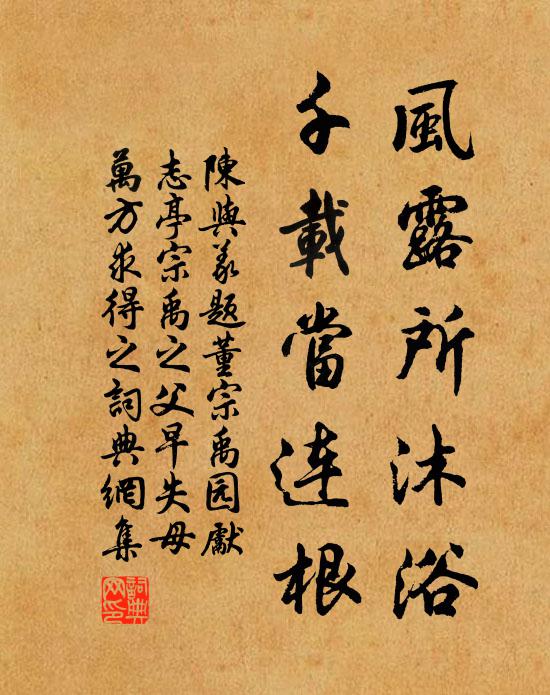 風露所沐浴
千載當连根
陳與义題董宗禹园獻
志亭宗禹之父早失母
萬方求得之詞典網集
詞典
网印